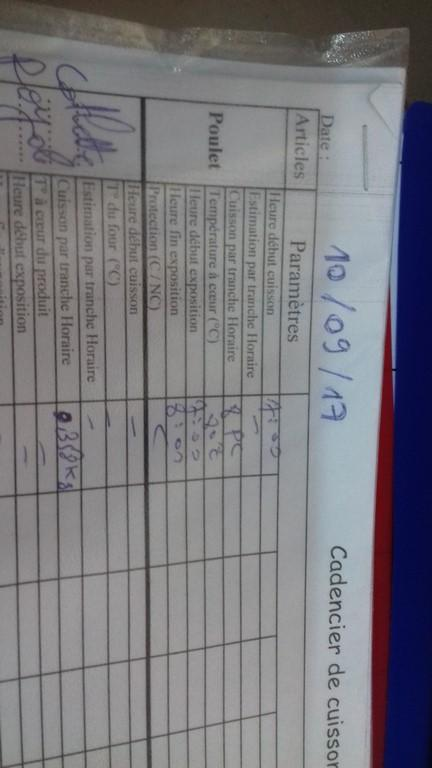 Cadencier de cuisson
Date : 10/09/17
Articles Paramètres
Poulet
Heure début cuisson 7:00
Estimation par tranche Horaire –
Cuisson par tranche Horaire 8 pc
Température à cœur (°C)
Heure début exposition
Heure fin exposition 8:00
Protection (C/NC) C
Heure début cuisson –
T° du four (°C) –
Estimation par tranche Horaire –
Cuisson par tranche Horaire
T° à cœur du produit –
Heure début exposition –